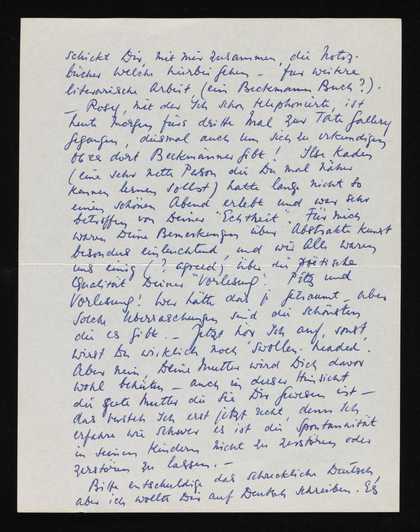 schickt Dir, mit mir zusammen, die Notiz-
bücher welche hierbei gehen – für weitere
literarische Arbeit (ein Beckmann Buch?).
– Rosy, mit der Ich schon telephonierte, ist
heute Morgen fürs dritte Mal zur Tate Gallery
gegangen, diesmal auch um sich zu erkundigen
ob es dort Beckmänner gibt! Ilse Kaden
(eine sehr nette Person die Du mal näher
kennen lernen sollst) hatte lange nicht so
einen schönen Abend erlebt und war sehr
betroffen von Deiner "Echtheit". Für mich
waren Deine Bemerkungen über Abstrakte Kunst
besonders einleuchtend, und wir Alle waren
uns einig (? agreed) über die poetische
Qualität Deiner "Vorlesung". Pitz und
Vorlesung! Wer hätte das je geträumt – aber
solche Überraschungen sind die schönsten
die es gibt. – Jetzt hör Ich auf, sonst
wirst Du wirklich noch "swollen-headed".
Aber nein, Deine Mutter wird Dich davor
wohl behüten – auch in dieser Hinsicht
die gute Mutter die Sie Dir gewesen ist –
das versteh Ich erst jetzt recht, denn Ich
erfahre wie schwer es ist die Spontanität
in seinen Kindern nicht zu zerstören oder
zerstören zu lassen. –
Bitte entschuldige das schreckliche Deutsch,
aber ich wollte Dir auf Deutsch schreiben. Es